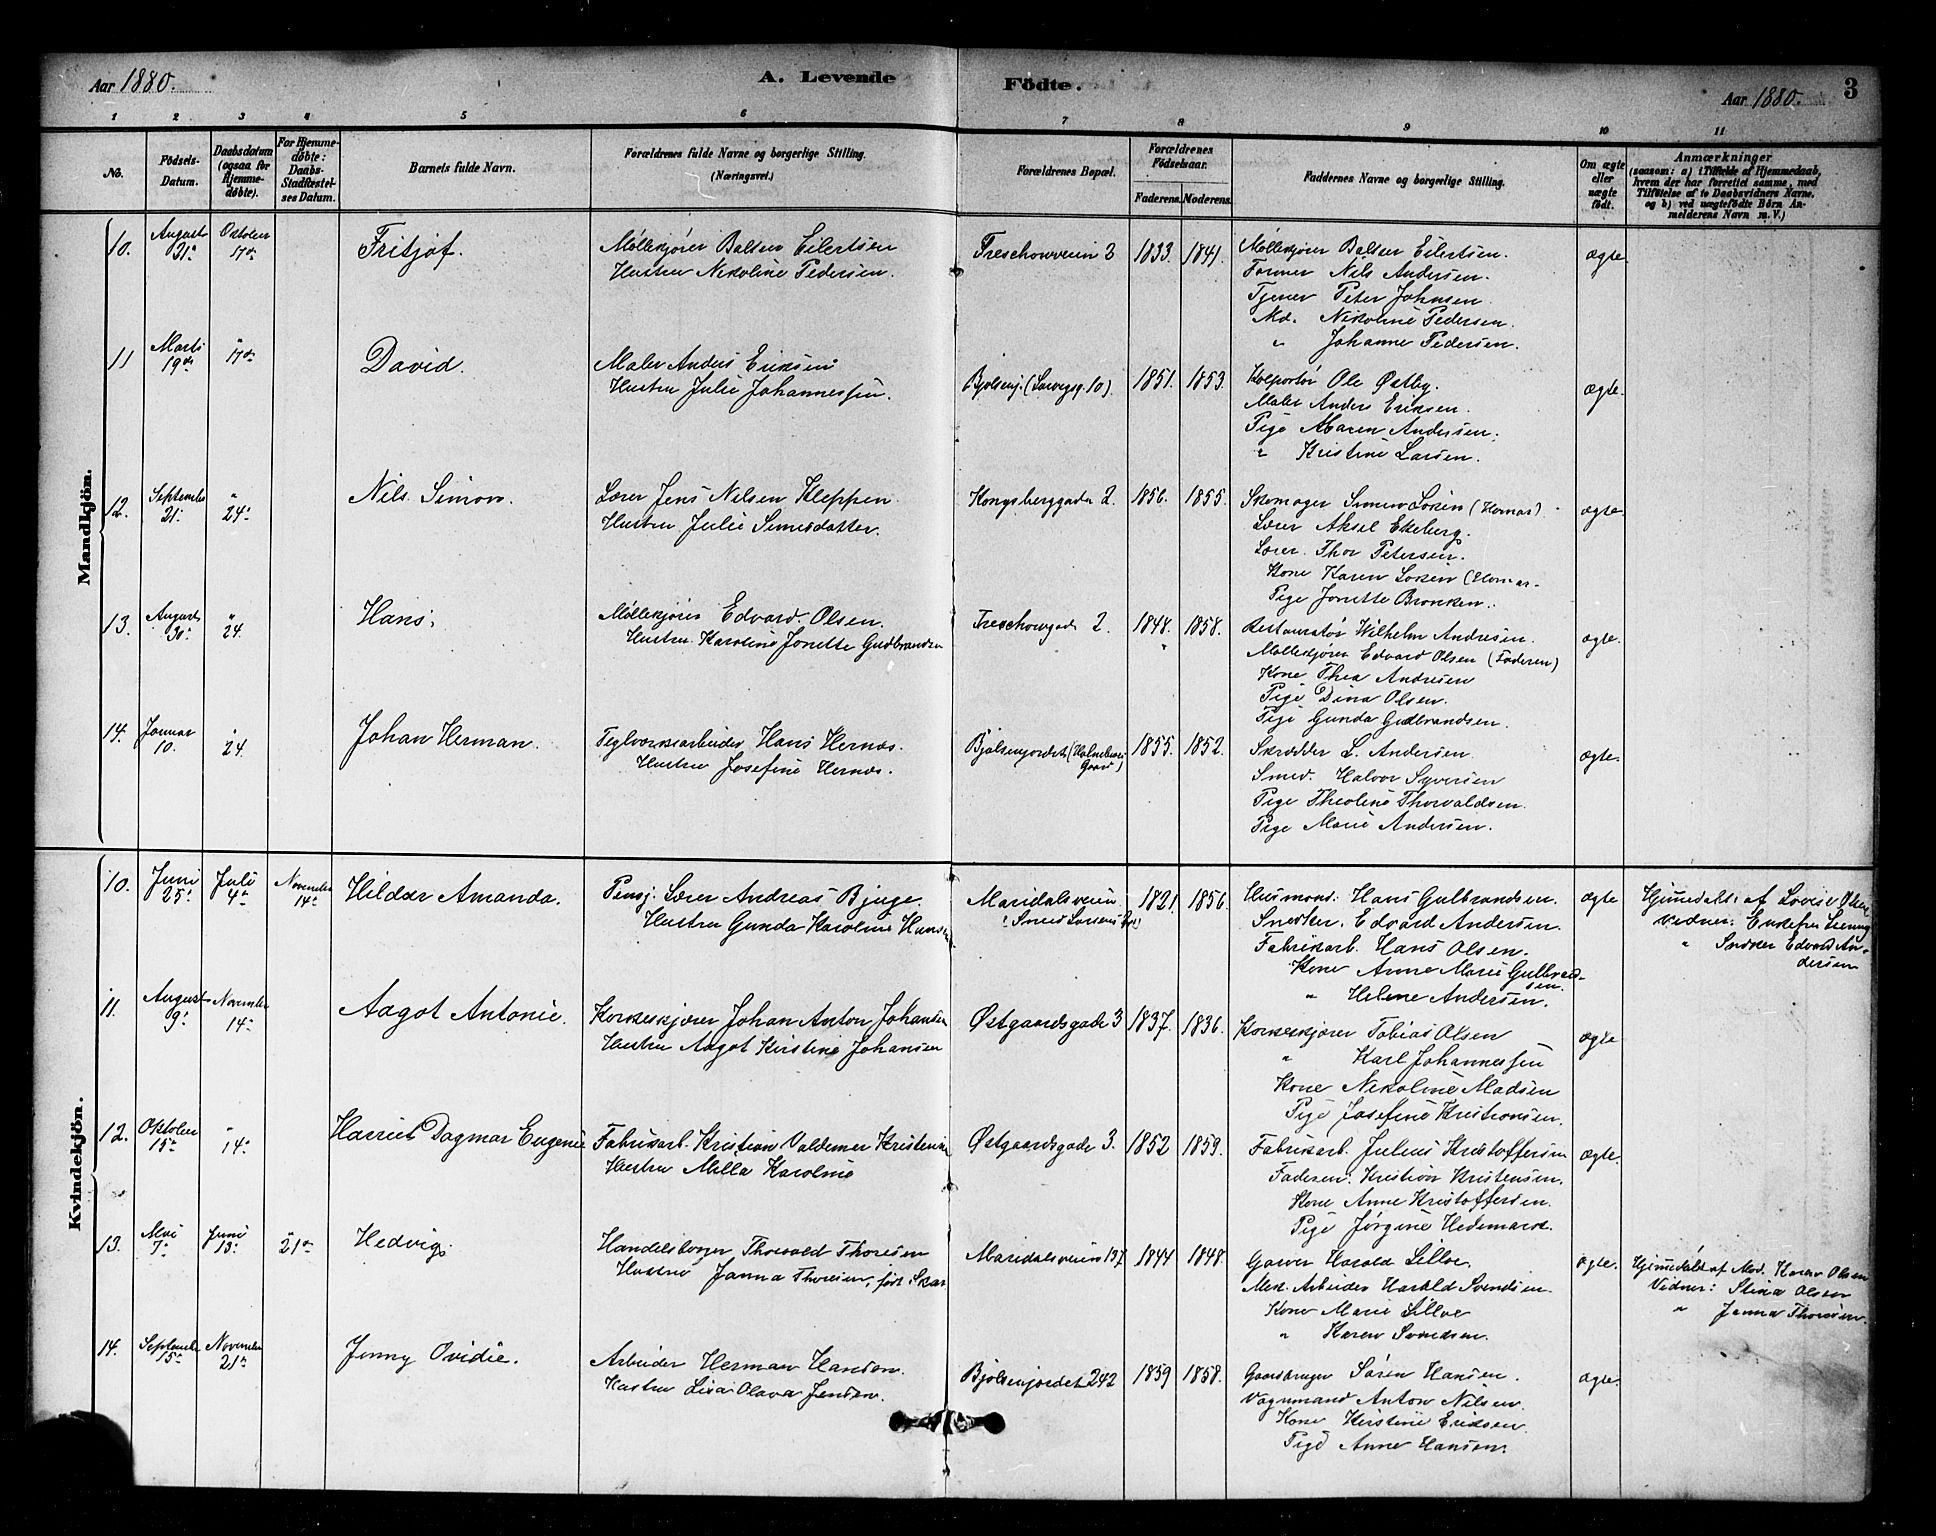 Aar 1880.
A. Levende Födte.
Aar 1880.
3
1 2 3 4 5 6 7 8 9 10 11
No.
Födsels-Datum.
Daabsdatum (ogsaa for Hjemme-döbte).
For Hjemme-döbte: Daabs-Stadfæstel-ses Datum.
Barnets fulde Navn.
Forældrenes fulde Navne og borgerlige Stilling. (Næringsvei.)
Forældrenes Bopæl.
Forældrenes Födselsaar.
Faderens. Moderens.
Faddernes Navne og borgerlige Stilling.
Om ægte eller uægte födt.
Anmærkninger
(saasom: a) i Tilfælde af Hjemmedaab,
hvem der har forrettet samme, med
Tilföielse af to Daabsvidners Navne,
og b) ved uægtefödte Börn An-
melderens Navn m. V.)
Mandkjön.
10. August 31. Oktober 17de Fritjof. Møllekjører Baltser Eilertsen Treschowveien 2 1833. 1841. Møllekjører Baltser Eilertsen. ægte.
Hustru Nikoline Pedersen. Former Nils Andersen.
Tjener Peter Johnsen.
Md. Nikoline Pedersen.
" Johanne Pedersen.
11 Marts 19de " 17de David. Maler Anders Eriksen Bjølsenj. 10). 1851. 1853. Kolportør Ole Østby. ægte.
Hustru Julie Johannessen. Maler Anders Eriksen.
Pige Maren Andersen.
" Kristine Larsen.
12. September 21. " 24. Nils Simon. Lærer Jens Nilsen Kleppen. Kongsberggade 2. 1856. 1855. Skomager Simen Løken ægte.
Hustru Julie Simensdatter. Lærer Aksel Ekeberg.
Lærer. Thor Petersen.
Kone Karen Løken
Pige Jonette Bronken.
13. August 30. " 24. Hans. Møllekjører Edvard Olsen. Treschowgade 2. 1848. 1858. Restauratør Wilhelm Andresen. ægte.
Hustru Karoline Jonette Gudbrandsen Møllekjører Edvard Olsen (Faderen)
Kone Thea Andresen
Pige Dina Olsen.
Pige Gunda Gudbrandsen.
14. Januar 10. " 24. Johan Herman. Teglværksarbeider Hans Hernæs. Bjølsenjordet Gaard) 1855. 1852. Skrædder L. Andersen. ægte.
Hustru Josefine Hernæs. Smed. Halvor Syversen
Pige Theoline Thorvaldsen.
Pige Marie Andersen.
Kvindekjön.
10. Juni 25. Juli 4de November 14de Hildar Amanda. Pensj. Lærer Andreas Bjuge. Maridalsveien 1821. 1856. Husmand. Hans Gulbrandsen. ægte Hjemmedøbt af Lovise Olsen
Hustru Gunda Karoline Hansen (Smed Larsens Snedker. Edvard Andersen. Vidner: Enkefru
Fabrikarb. Hans Olsen. " Snedker Edvard An-
Kone Anne Marie Gulbrand- dersen
sen.
" Helene Andersen.
11. August 9. November 14de Aagot Antonie. Korkeskjærer Johan Anton Johansen Østgaardsgade 3 1837. 1836. Korkeskjærer Tobias Olsen ægte
Hustru Aagot Kirstine Johansen " Karl Johannessen
Kone Nikoline Madsen
Pige Josefine Kristiansen.
12. Oktober 15de " 14. Harriet Dagmar Eugenie Fabrikarb. Kristian Valdemar Kristensen Østgaardsgade 3. 1852 1859. Fabrikarb. Julius Kristoffersen ægte.
Hustru Milla Karoline Faderen: Kristian Kristensen.
Kone Anne Kristoffersen.
Pige Jørgine Hedemark.
13. Mai 7. Juni 13. " 21de Hedvig. Handelsborger Thorvald Thoresen Maridalsveien 137 1844 1848. Garver Harald Lilloe. ægte. Hjemmedøbt af Md. Karen Olsen
Hustru Janna Thoresen, født Skar. Mek. Arbeider Harald Svendsen. Vidner: Stina Olsen
Kone Marie Lilloe " Janna Thoresen.
" Karen Svendsen.
14. September 15de November 21de Jenny Ovidie. Arbeider Herman Hansen. Bjølsenjordet 242 1859 1858. Gaardsdrenger Søren Hansen. ægte.
Hustru Lisa Olava Jensen. Vognmand Anton Nilsen.
Kone Kirstine Eriksen
Pige Anne Hansen.